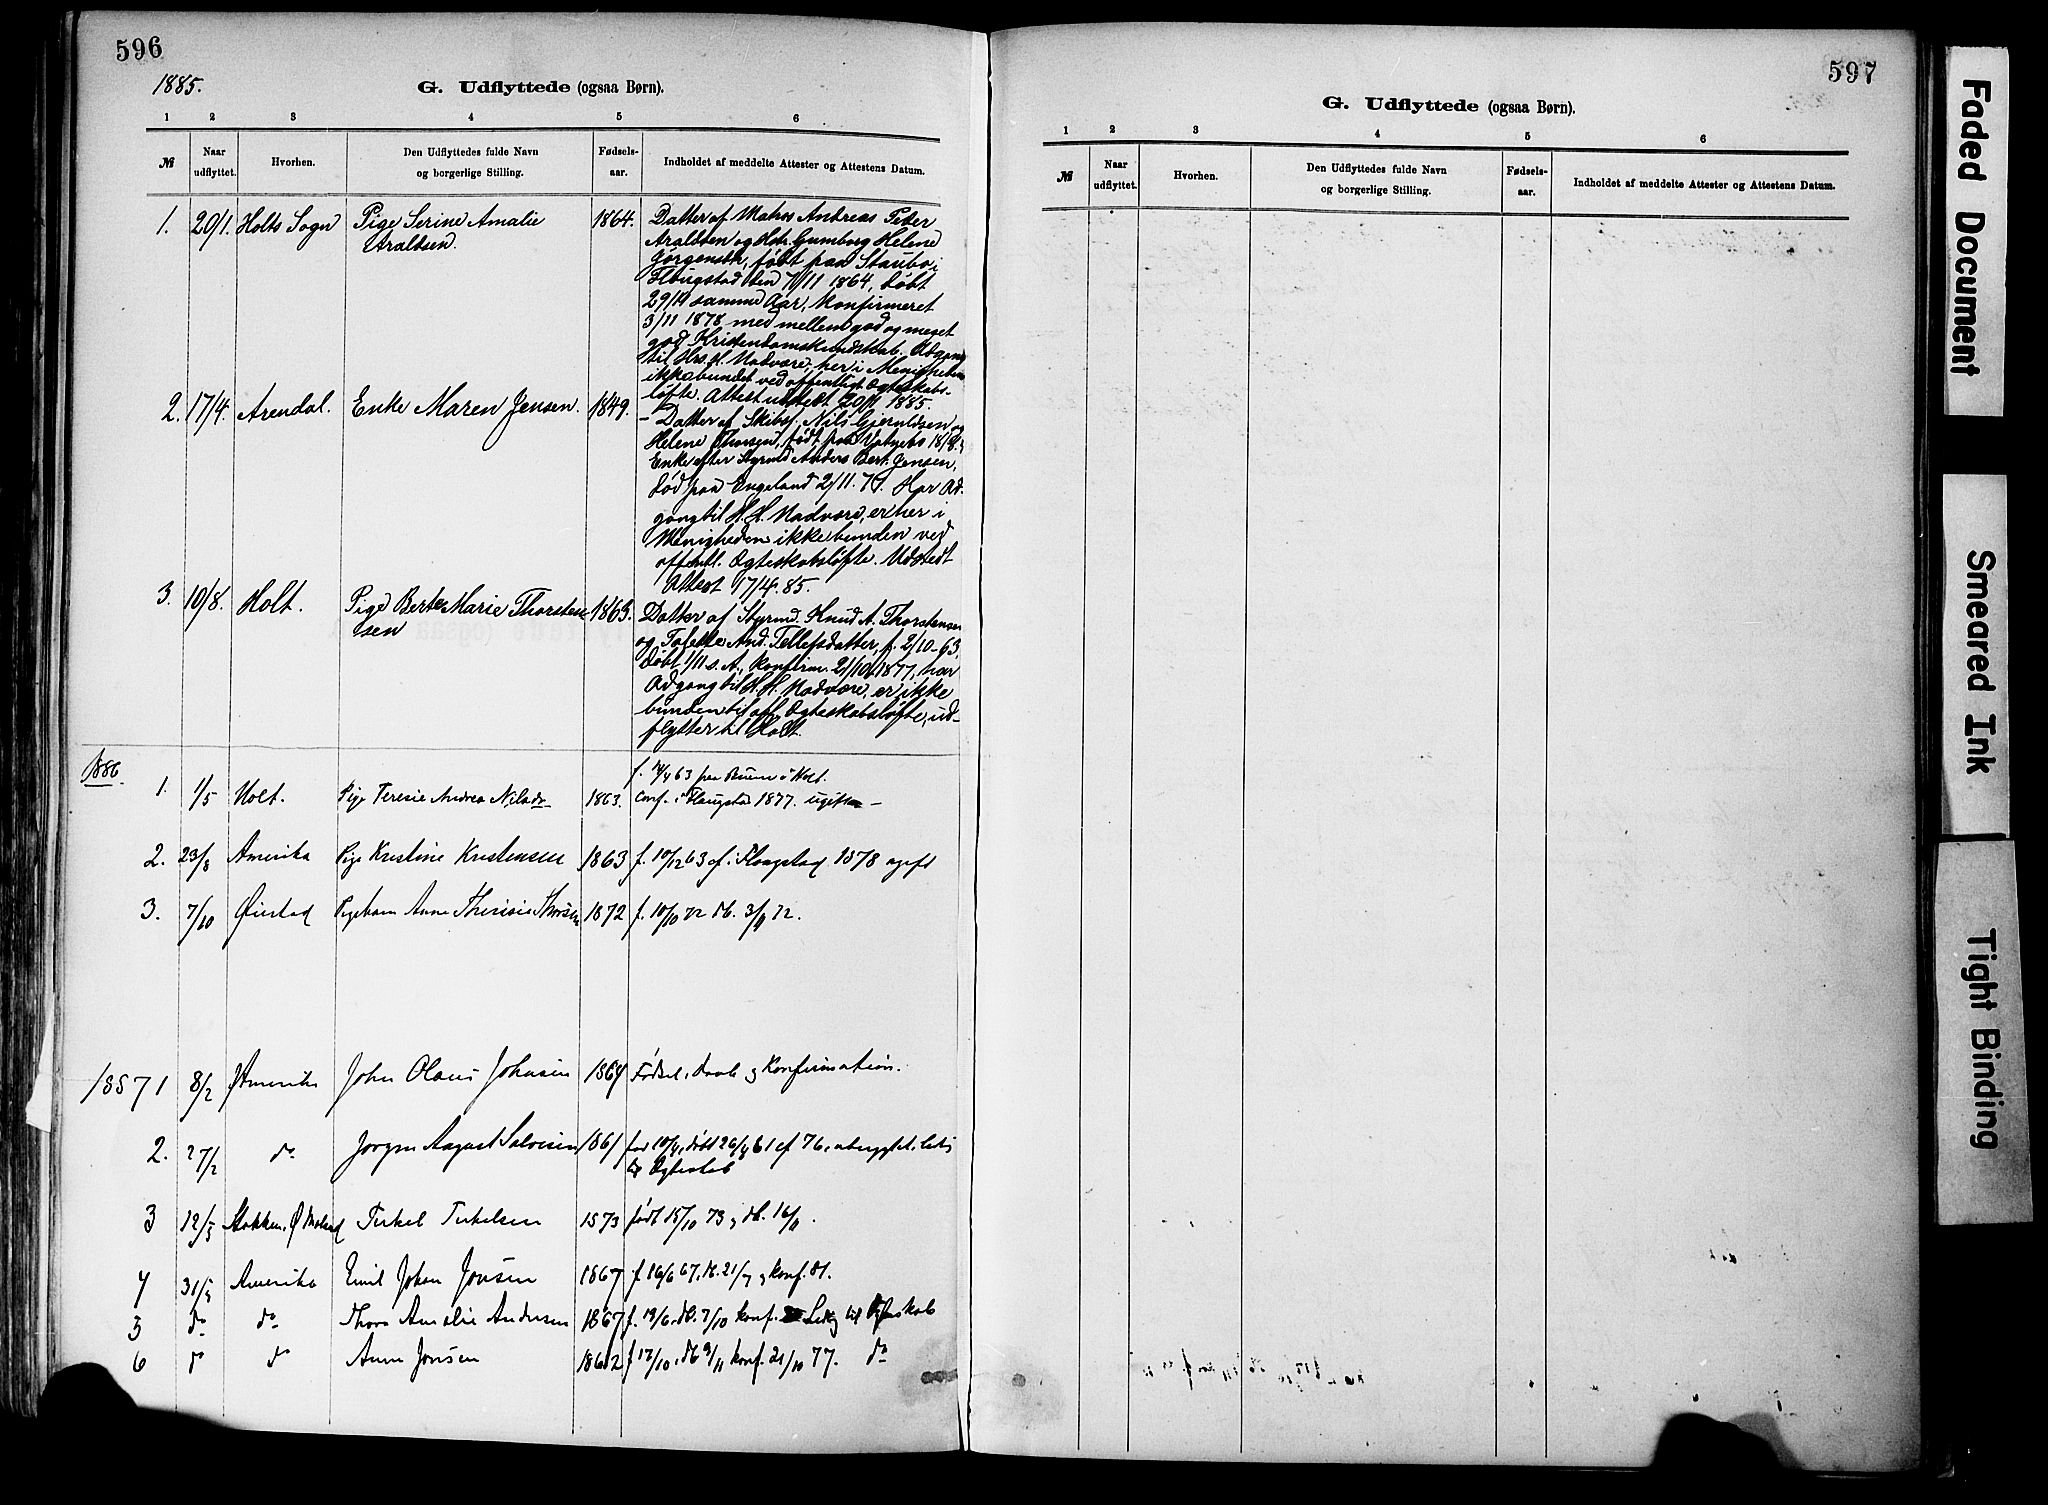 596
1885.
G. Udflyttede (ogsaa Børn).
1 2 3 4 5 6
№ Naar udflyttet. Hvorhen. Den Udflyttedes fulde Navn og borgerlige Stilling. Fødsels-aar. Indholdet af meddelte Attester og Attestens Datum.
1. 20/1. Holts Sogn Pige Serine Amalie 1864. Datter af Matros Andreas Peder
Araldsen. Araldsen og Hstr. Gumborg Helene
Jørgensdtr, født paa Staubo i
Flougstad den 7/11 1864, døbt
29/11 samme Aar, Konfirmeret
3/11 1878 med mellem god og meget
god Kristendomskundskab. Adgang
til Hrs. H. Nadvere, her i Menigheden
ikke bundet ved offentligt Ægteskabs-
løfte. Attest udstedt 20/1 1885.
2. 17/4. Arendal. Enke Maren Jensen. 1849. - Datter af Skibsf. Nils Gjeruldsen og
Helene Thorsen, født paa
Enke efter Styrmd Anders Bert. Jensen,
død paa Engeland 2/11. Har Ad-
gang til H. H. Nadvere, er her i
Menigheden ikke bunden ved
offentl. Ægteskabsløfte. Udstedt
Attest 17/4. 85.
3. 10/8. Holt. Pige Berte Marie Thorsten 1863. Datter af Styrmd. Knud A. Thorstensen
sen og And. Tellefsdatter, f. 2/10-63,
døbt 1/11 s. A., konfirm. 21/10 1877, har
Adgang til H. H. Nadvere, er ikke
bunden til off. Ægteskabsløfte, ud-
flytter til Holt.
1886.
1. 1/5 Holt. Pige Teresie Andrea Nilsdr 1863. f. 63 paa i Holt.
Conf. i Flaugstad 1877. ugift -
2. 23/8 Amerika Pige Kristine Kristensen 1863 f. 10/12 63 cf. i Flaugstad 1878 ugift
3. 7/10 Øiestad Pigebarn Anne Theresie Thorsen 1872 f. 10/10 72 db. 3/11 72.
1887 1 8/2 Amerika John Olaus Johnsen 1864 Fødsel, Daab og Konfirmation.
2. 27/2 do Jørgen August Salvesen 1861 født 10/4, døbt 26/4 61 cf 76, ledig
til Ægteskab
3 12/5 Stokken, Ø Moland Terkel Terkelsen 1873 født 15/10 73 og db. 16/11.
4 31/5 Amerika Emil Johan Jonsen 1867 f. 16/6 67, db. 21/7 og konf. 81.
5 do do Thora Amalie Andersen 1867 f. 19/6, db. 7/10 konf. Ledig til Ægteskab
6 do do Anne Jonsen 1862 f 12/10, db 9/11 konf. 21/10 77. do
597
G. Udflyttede (ogsaa Børn).
1 2 3 4 5 6
№ Naar udflyttet. Hvorhen. Den Udflyttedes fulde Navn og borgerlige Stilling. Fødsels-aar. Indholdet af meddelte Attester og Attestens Datum.
Faded Document
Smeared Ink
Tight Binding